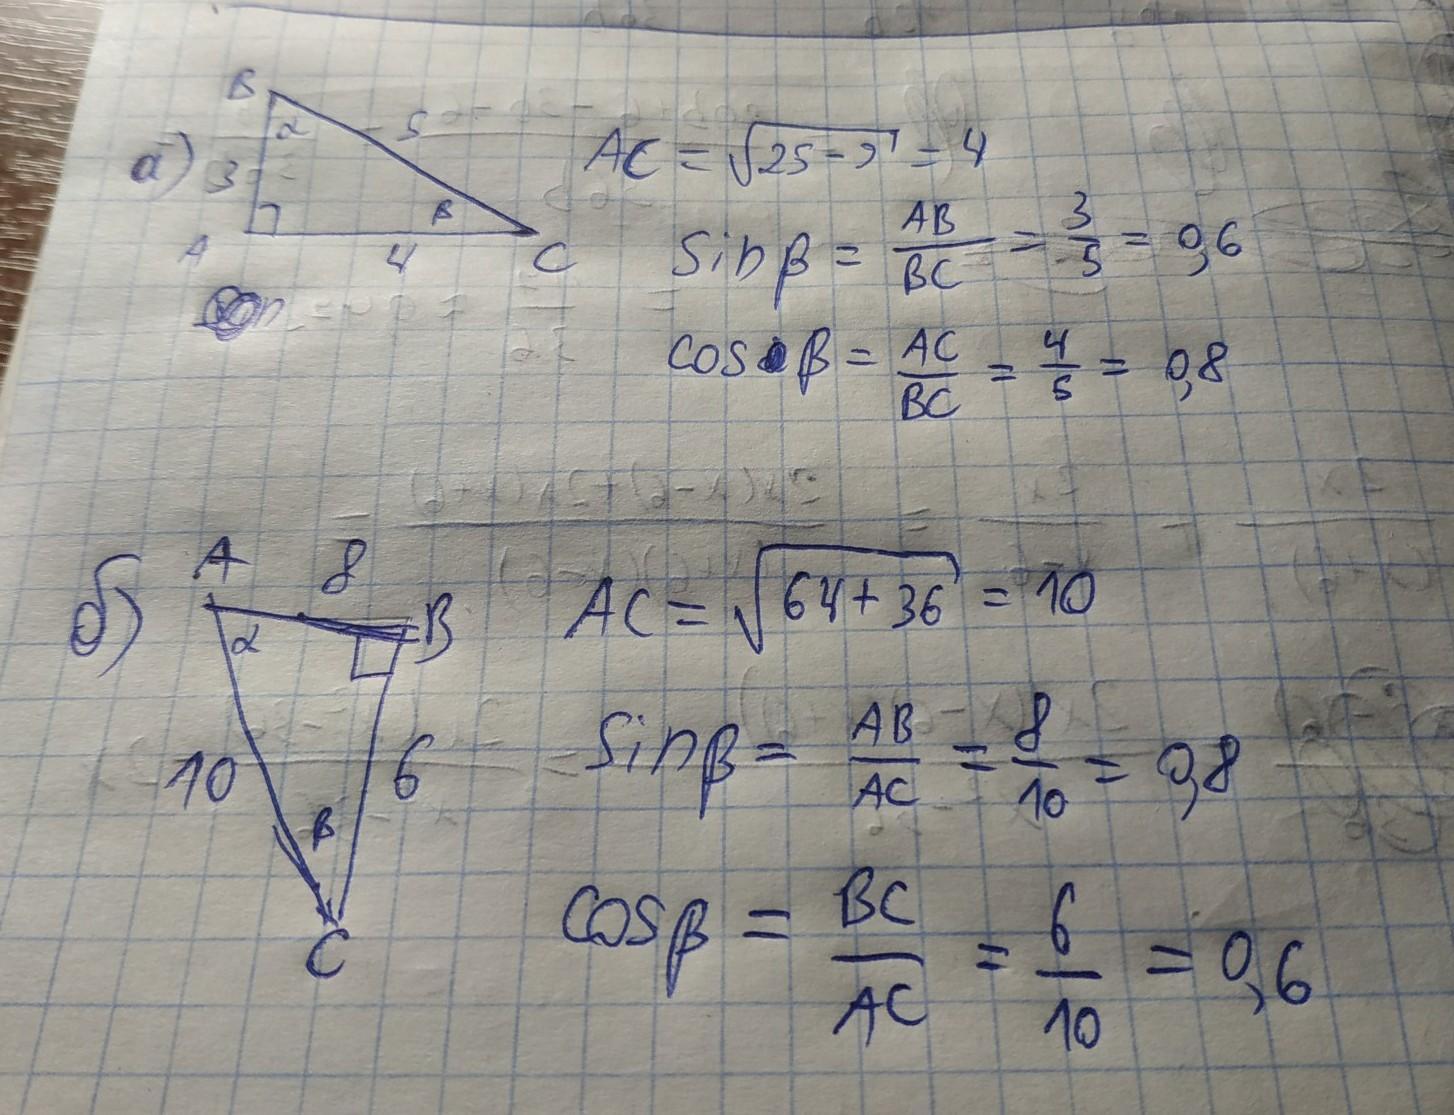 а)
B
α
5
3
β
A
4
C
AC = √25-9 = 4
sin β = AB/BC = 3/5 = 0,6
cos β = AC/BC = 4/5 = 0,8
б)
A
8
B
α
10
6
β
C
AC = √64+36 = 10
sin β = AB/AC = 8/10 = 0,8
cos β = BC/AC = 6/10 = 0,6